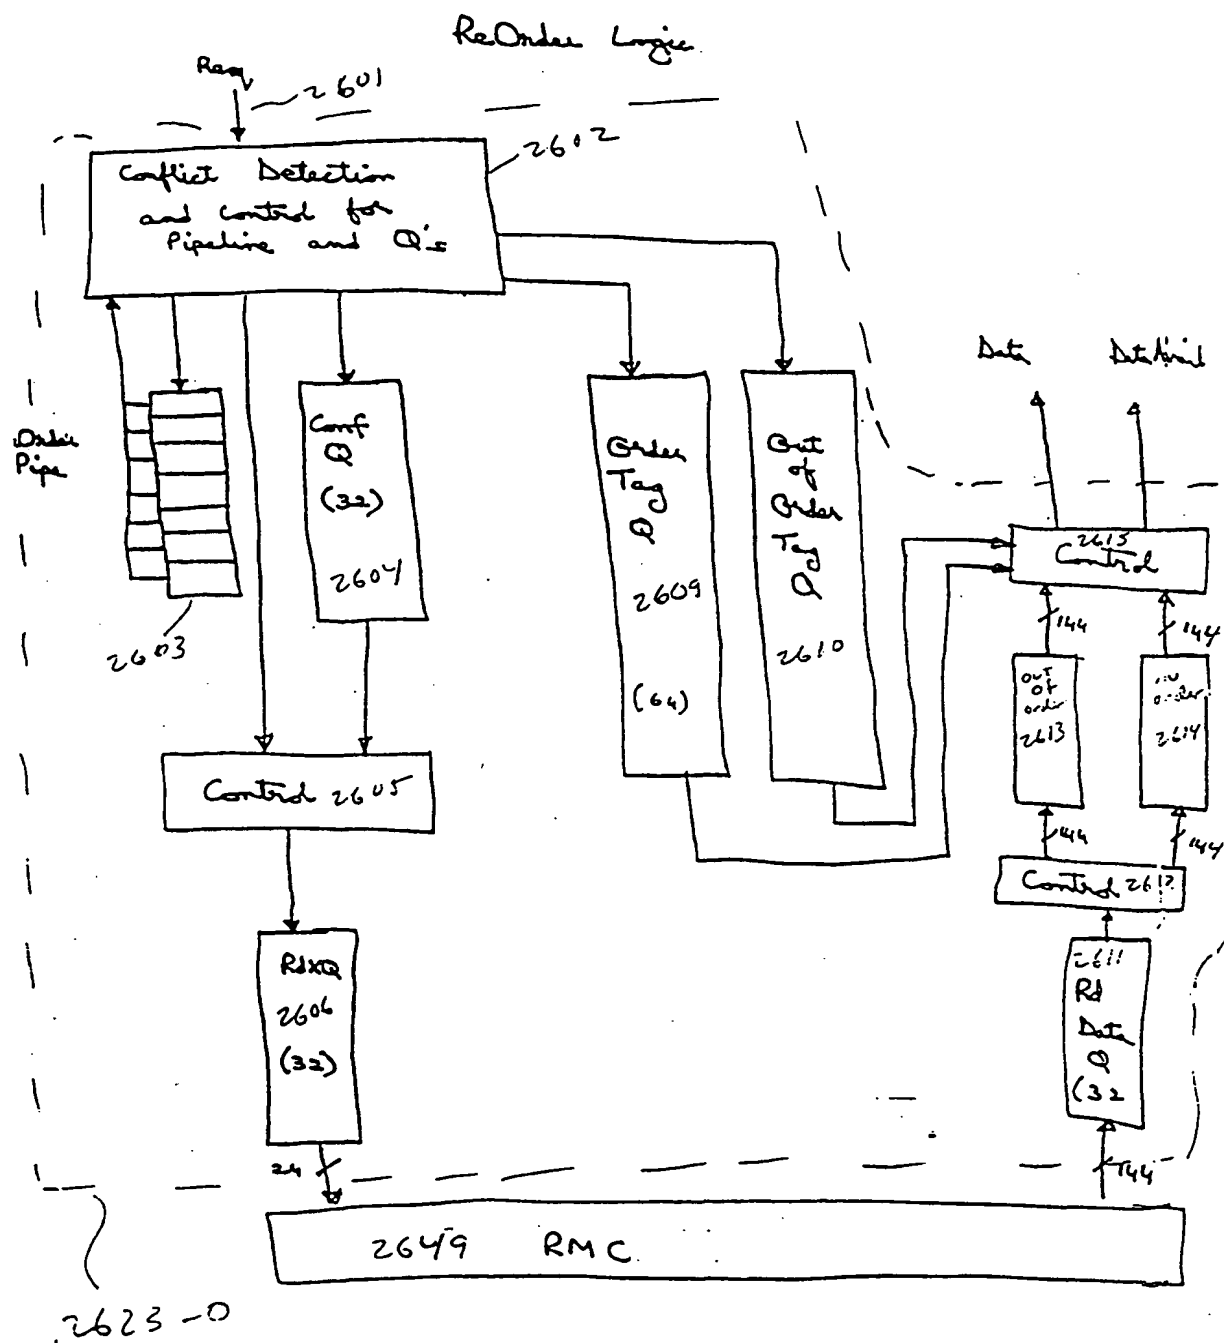 ReOrder Logic
Req
2601
2602
Conflict Detection
and Control for
Pipeline and Q's
Order
Pipe
2603
Conf
Q
(32)
2604
Order
Tag
Q
2609
(64)
Out
of
Order
Tag
Q
2610
Data
Data Avail
2615
Control
144
144
out
of
order
2613
order
2614
144
144
Control 2612
Control 2605
RdXQ
2606
(32)
2611
Rd
Data
Q
(32
24
144
2649 RMC
2623-0